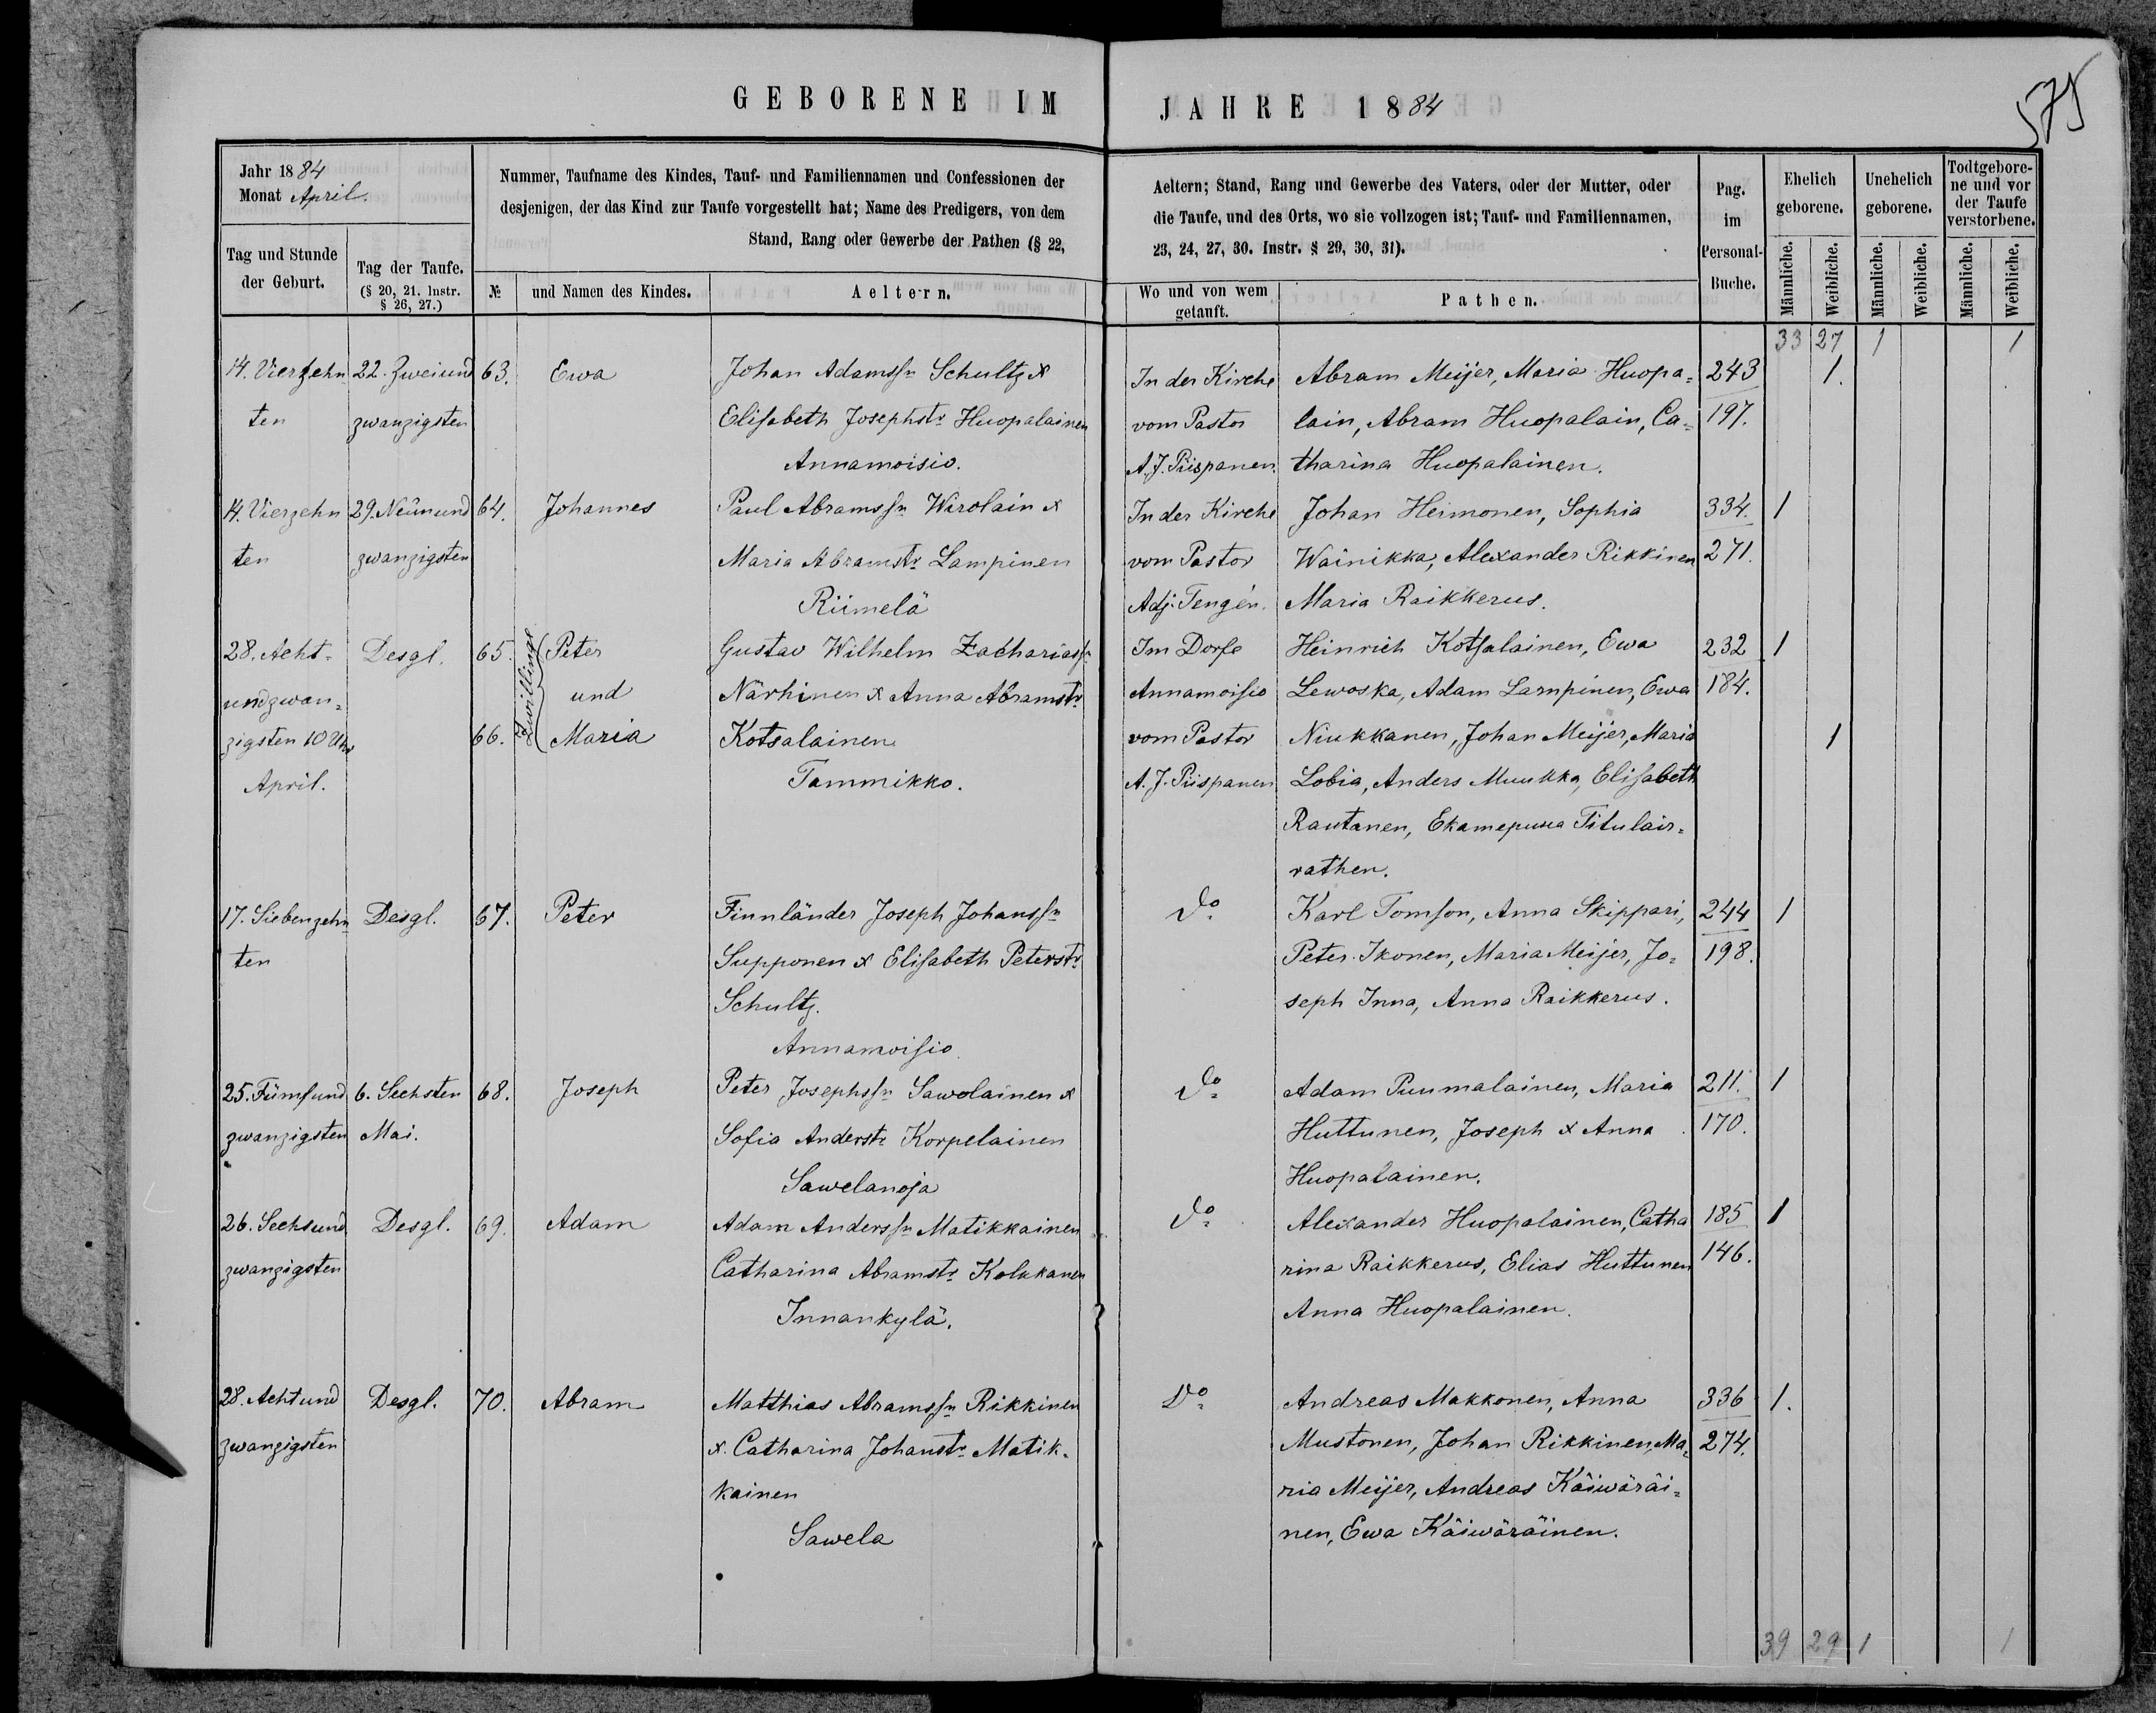 GEBORENE IM JAHRE 1884
575
Jahr 1884
Monat April.
Nummer, Taufname des Kindes, Tauf- und Familiennamen und Confessionen der
desjenigen, der das Kind zur Taufe vorgestellt hat; Name des Predigers, von dem
Stand, Rang oder Gewerbe der Pathen (§ 22,
Aeltern; Stand, Rang und Gewerbe des Vaters, oder der Mutter, oder
die Taufe, und des Orts, wo sie vollzogen ist; Tauf- und Familiennamen,
23, 24, 27, 30. Instr. § 29, 30, 31).
Pag.
im
Personal-
Buche.
Ehelich
geborene.
Unehelich
geborene.
Todtgebore-
ne und vor
der Taufe
verstorbene.
Tag und Stunde
der Geburt.
Tag der Taufe.
(§ 20, 21. Instr.
§ 26, 27.)
№
und Namen des Kindes.
Aeltern.
Wo und von wem
getauft.
Pathen.
Männliche.
Weibliche.
Männliche.
Weibliche.
Männliche.
Weibliche.
33 27 1 1
14. Vierzehn 22. Zweiund 63. Ewa Johan Adamssn Schultz & In der Kirche Abram Meijer, Maria Huopa= 243 1.
ten zwanzigsten Elisabeth Josephstr Huopalainen vom Pastor lain, Abram Huopalain, Ca= 197.
Annamoisio. A. J. Piispanen. tharina Huopalainen.
14. Vierzehn 29. Neunund 64. Johannes Paul Abramssn Wirolain & In der Kirche Johan Heimonen, Sophia 334. 1
ten zwanzigsten Maria Abramstr Lampinen vom Pastor Wainikka, Alexander Rikkinen 271.
Riimelä Adj. Tengén. Maria Raikkerus.
28. Acht- Desgl. 65. Zwillinge Peter Gustav Wilhelm Zachariassn Im Dorfe Heinrich Kotsalainen, Ewa 232 1
undzwan= und Närhinen & Anna Abramstr Annamoisio Lewoska, Adam Lampinen, Ewa 184.
zigsten 10 Uhr 66. Maria Kotsalainen vom Pastor Niukkanen, Johan Meijer, Maria 1
April. Tammikko. A. J. Piispanen Lobia, Anders Muukka, Elisabeth
Rautanen, Екатерина Titulair=
rathen.
17. Siebenzehn Desgl. 67. Peter Finnländer Joseph Johanssn Do Karl Tomson, Anna Skippari, 244 1
ten Supponen & Elisabeth Peterstr Peter Ikonen, Maria Meijer, Jo= 198.
Schultz. seph Inna, Anna Raikkerus.
Annamoisio.
25. Fümfund 6. Sechsten 68. Joseph Peter Josephssn Sawolainen & Do Adam Puumalainen, Maria 211. 1
zwanzigsten Mai. Sofia Anderstr Korpelainen Huttunen, Joseph & Anna 170.
Sawelanoja Huopalainen.
26. Sechsund Desgl. 69. Adam Adam Anderssn Matikkainen Do Alexander Huopalainen, Catha 185 1
zwanzigsten Catharina Abramstr Kolkkanen rina Raikkerus, Elias Huttunen 146.
Innankylä. Anna Huopalainen.
28. Achtund Desgl. 70. Abram Matthias Abramssn Rikkinen Do Andreas Makkonen, Anna 336 1.
zwanzigsten &. Catharina Johanstr Matik- Mustonen, Johan Rikkinen, Ma= 274.
kainen ria Meijer, Andreas Käiwäräi=
Sawela nen, Ewa Käiwäräinen.
39 29 1 1